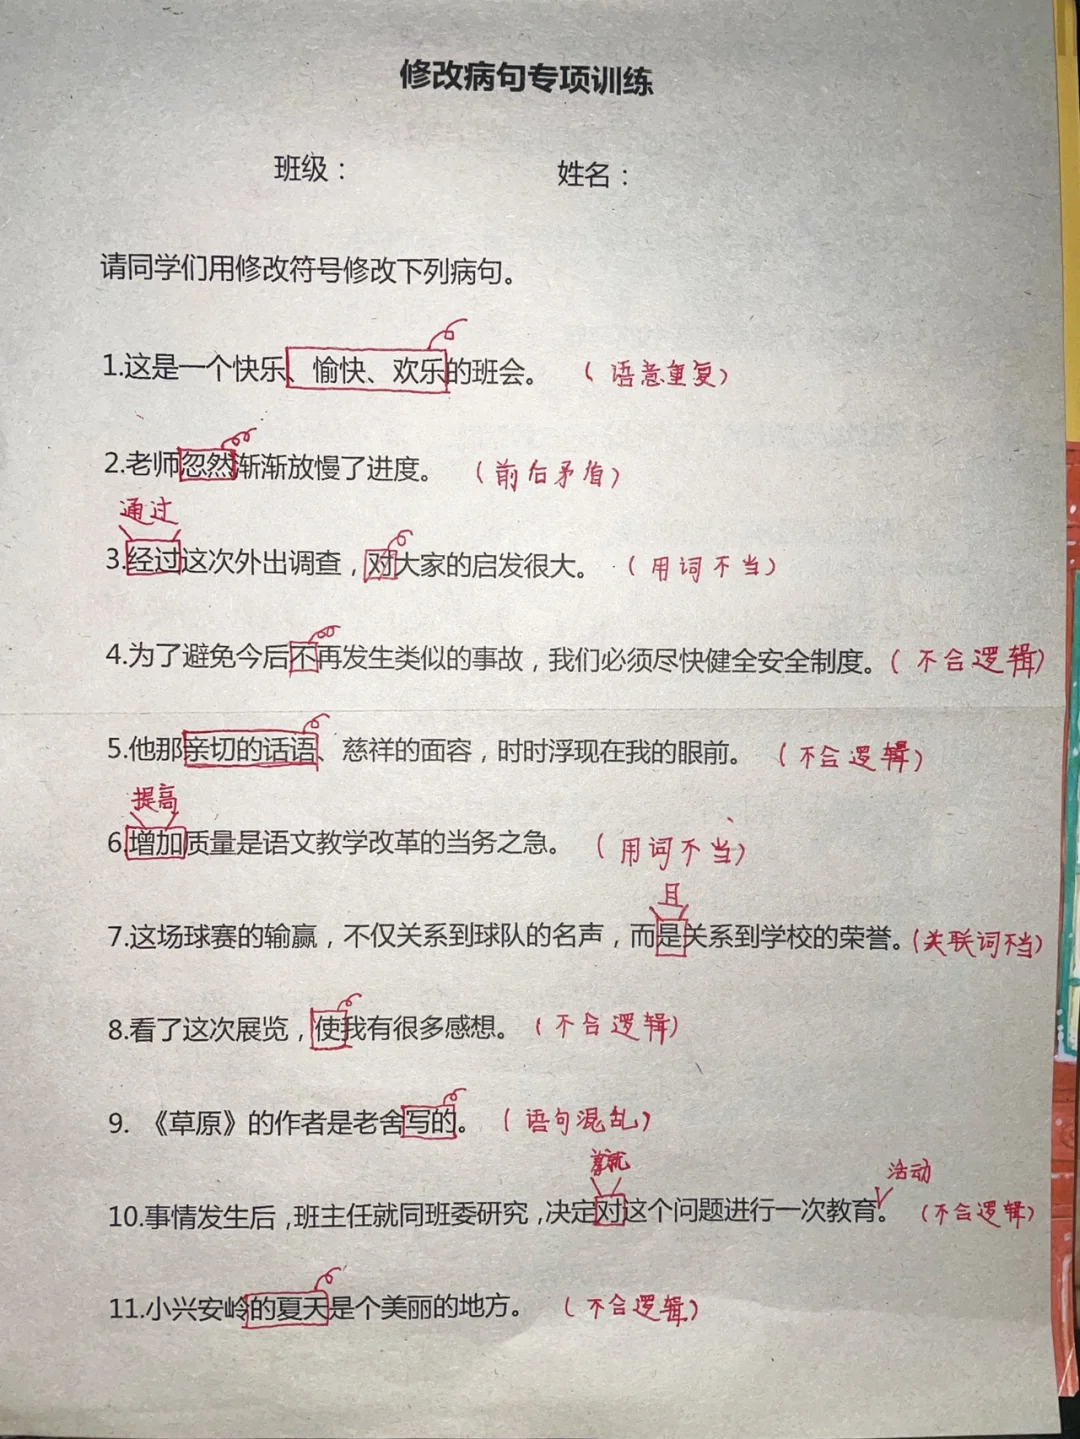 修改病句专项训练
班级： 姓名：
请同学们用修改符号修改下列病句。
1.这是一个快乐、愉快、欢乐的班会。（语意重复）
2.老师忽然渐渐放慢了进度。（前后矛盾）
通过
3.经过这次外出调查，对大家的启发很大。（用词不当）
4.为了避免今后不再发生类似的事故，我们必须尽快健全安全制度。（不合逻辑）
5.他那亲切的话语、慈祥的面容，时时浮现在我的眼前。（不合逻辑）
提高
6.增加质量是语文教学改革的当务之急。（用词不当）
且
7.这场球赛的输赢，不仅关系到球队的名声，而是关系到学校的荣誉。（关联词不当）
8.看了这次展览，使我有很多感想。（不合逻辑）
9.《草原》的作者是老舍写的。（语句混乱）
就 活动
10.事情发生后，班主任就同班委研究，决定对这个问题进行一次教育。（不合逻辑）
11.小兴安岭的夏天是个美丽的地方。（不合逻辑）